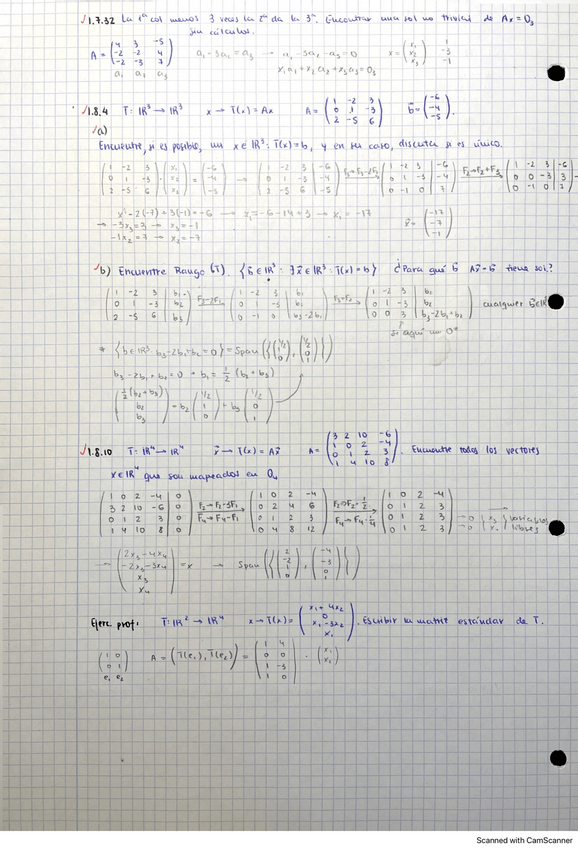 1.7.32 La 1ª col menos 3 veces la 2ª da la 3ª. Encontrar una sol no trivial de Ax = 0₃
sin cálculos.
A = (4 3 -5; -2 -2 4; -2 -3 7) a₁ - 3a₂ = a₃ → a₁ - 3a₂ - a₃ = 0 x = (x₁; x₂; x₃) 1 -3 -1
a₁ a₂ a₃ x₁a₁ + x₂a₂ + x₃a₃ = 0₃
1.8.4 T: ℝ³ → ℝ³ x → T(x) = Ax A = (1 -2 3; 0 1 -3; 2 -5 6) b⃗ = (-6; -4; -5).
a)
Encuentre, si es posible, un x ∈ ℝ³: T(x) = b, y en su caso, discuta si es único.
(1 -2 3; 0 1 -3; 2 -5 6) · (x₁; x₂; x₃) = (-6; -4; -5) → (1 -2 3 | -6; 0 1 -3 | -4; 2 -5 6 | -5) F₃→F₃-2F₁ (1 -2 3 | -6; 0 1 -3 | -4; 0 -1 0 | 7) F₂→F₂+F₃ (1 -2 3 | -6; 0 0 -3 | 3; 0 -1 0 | 7)
x₁ - 2(-7) + 3(-1) = -6 → x₁ = -6 - 14 + 3 → x₁ = -17
→ -3x₃ = 3 → x₃ = -1
-1x₂ = 7 → x₂ = -7
x⃗ = (-17; -7; -1)
b) Encuentre Rango (T) {b⃗ ∈ ℝ³: ∃x⃗ ∈ ℝ³: T(x) = b} ¿Para qué b⃗ Ax⃗ = b⃗ tiene sol?
(1 -2 3 | b₁; 0 1 -3 | b₂; 2 -5 6 | b₃) F₃-2F₁ (1 -2 3 | b₁; 0 1 -3 | b₂; 0 -1 0 | b₃-2b₁) F₃+F₂ (1 -2 3 | b₁; 0 1 -3 | b₂; 0 0 -3 | b₃-2b₁+b₂) cualquier b⃗ ∈ ℝ³
si aquí un 0*
* {b ∈ ℝ³: b₃ - 2b₁ + b₂ = 0} = Span({(1/2; 1; 0), (1/2; 0; 1)})
b₃ - 2b₁ + b₂ = 0 → b₁ = 1/2 (b₂ + b₃)
(1/2(b₂+b₃); b₂; b₃) = b₂ (1/2; 1; 0) + b₃ (1/2; 0; 1)
1.8.10 T: ℝ⁴ → ℝ⁴ x⃗ → T(x) = Ax⃗ A = (3 2 10 -6; 1 0 2 -4; 0 1 2 3; 1 4 10 8). Encuentre todos los vectores
x ∈ ℝ⁴ que son mapeados en 0₄
(1 0 2 -4 | 0; 3 2 10 -6 | 0; 0 1 2 3 | 0; 1 4 10 8 | 0) F₂→F₂-3F₁ F₄→F₄-F₁ (1 0 2 -4; 0 2 4 6; 0 1 2 3; 0 4 8 12) F₂→F₂·1/2 F₄→F₄·1/4 (1 0 2 -4; 0 1 2 3; 0 1 2 3; 0 1 2 3) → x₃ x₄ variables libres
→ (-2x₃+4x₄; -2x₃-3x₄; x₃; x₄) = x → Span({(2; -2; 1; 0), (-4; -3; 0; 1)})
Ejerc. prof. T: ℝ² → ℝ⁴ x → T(x) = (x₁ + 4x₂; 0; x₁ - 3x₂; x₁). Escribir la matriz estándar de T.
(1 0; 0 1) A = (T(e₁), T(e₂)) = (1 4; 0 0; 1 -3; 1 0) · (x₁; x₂)
e₁ e₂
Scanned with CamScanner